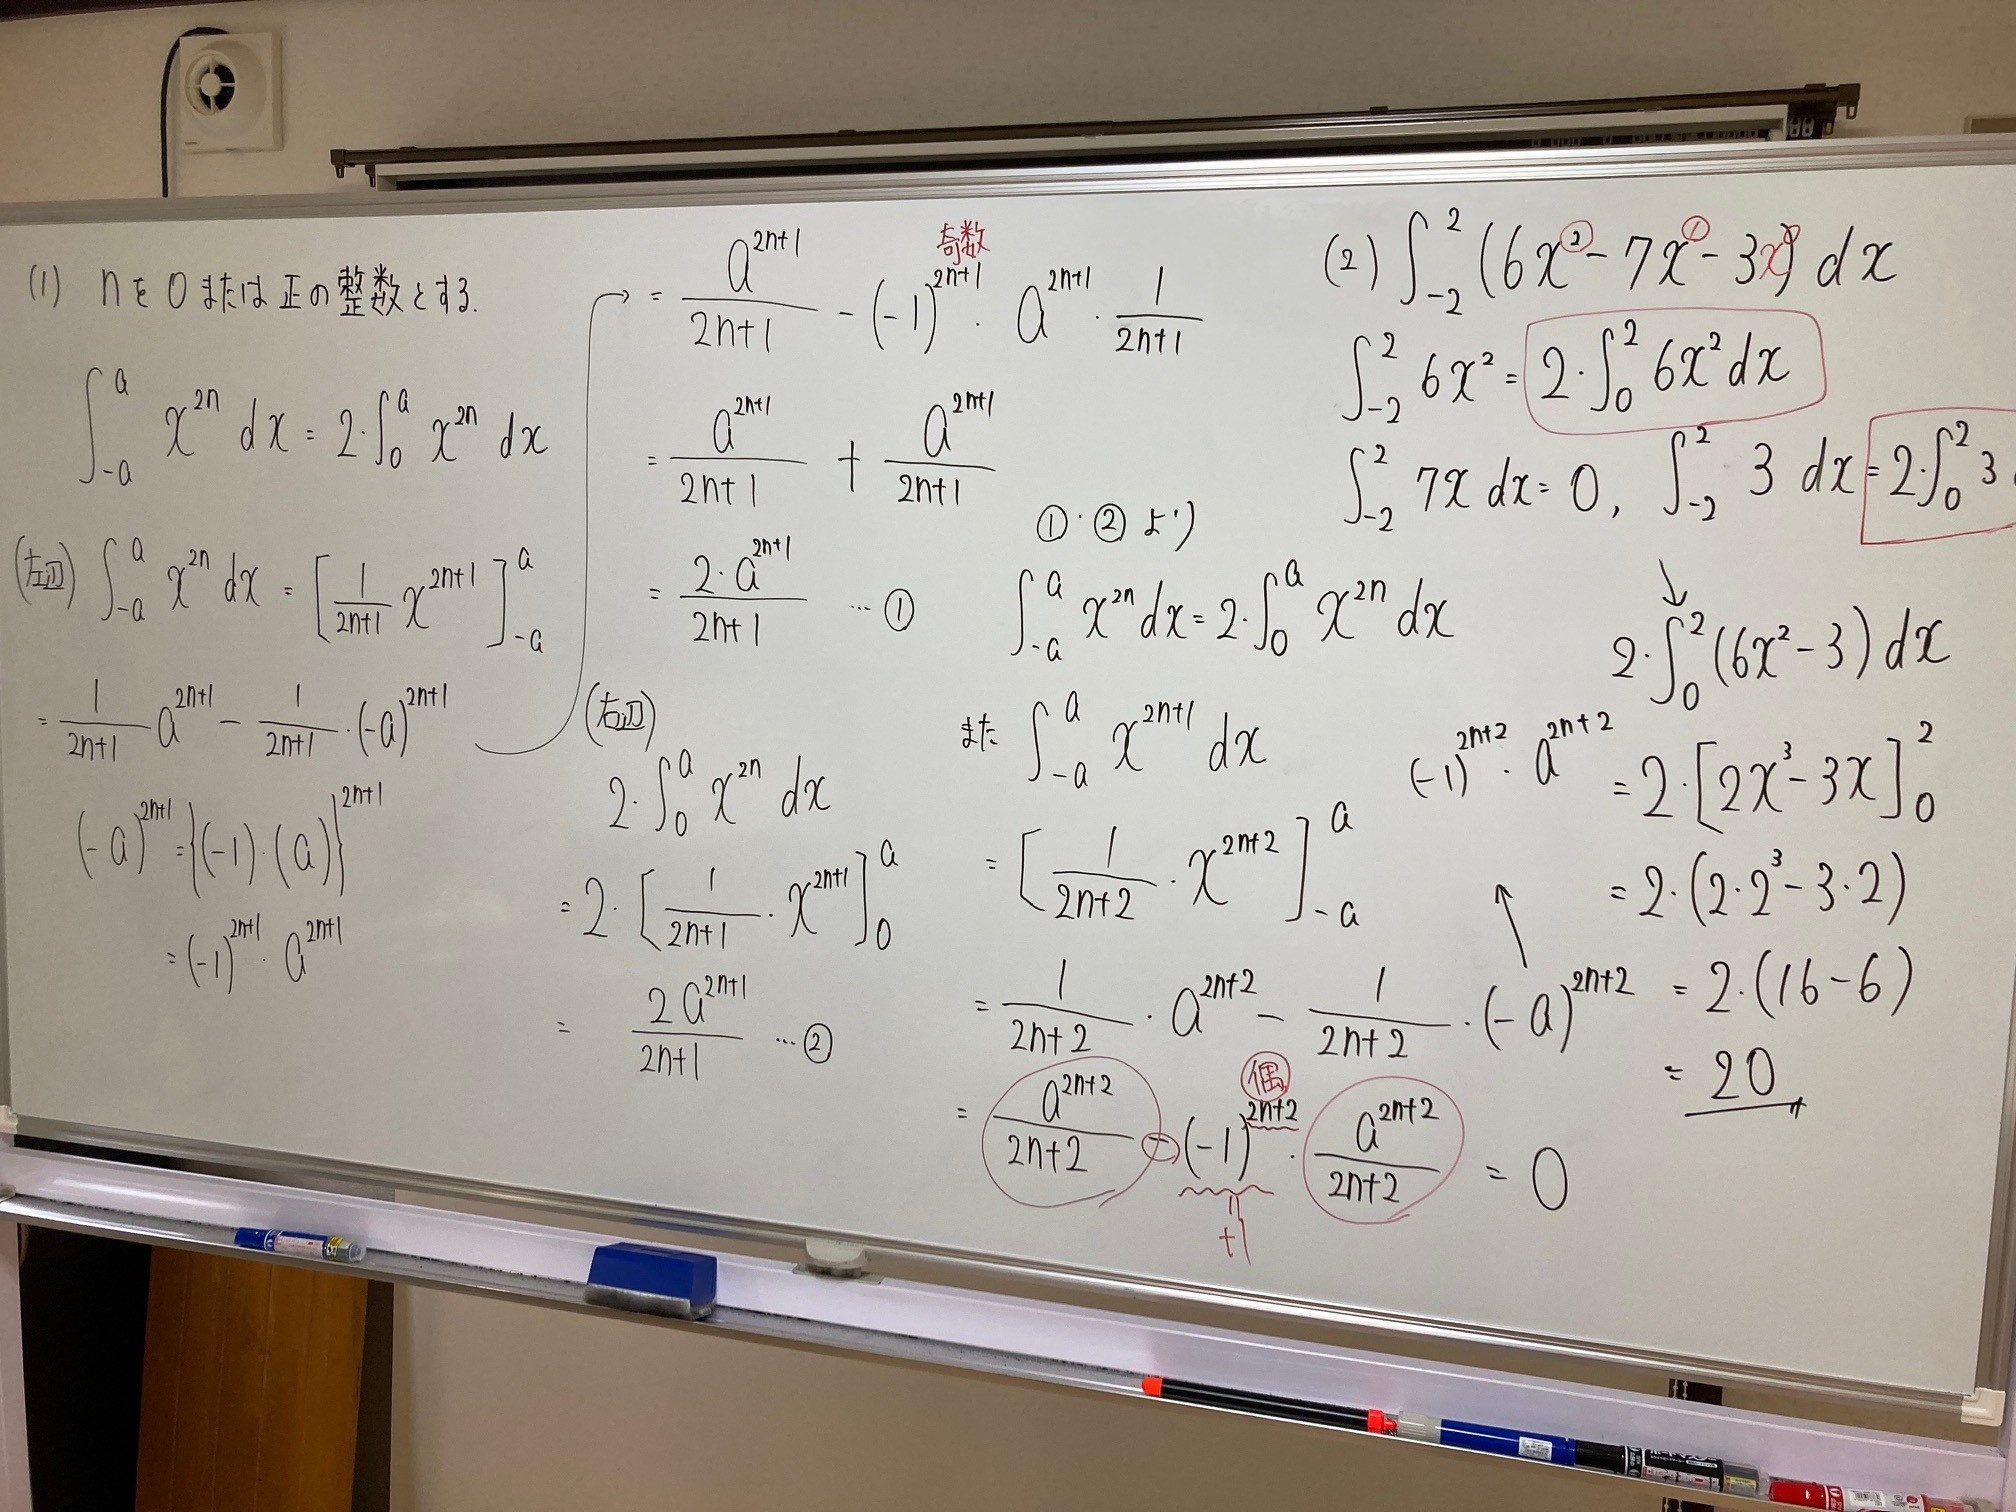 (1) nを0または正の整数とする.
∫_{-a}^{a} x^{2n} dx = 2·∫_{0}^{a} x^{2n} dx
(左辺) ∫_{-a}^{a} x^{2n} dx = [1/(2n+1) x^{2n+1}]_{-a}^{a}
= 1/(2n+1) a^{2n+1} - 1/(2n+1)·(-a)^{2n+1}
(-a)^{2n+1} = {(-1)·(a)}^{2n+1}
= (-1)^{2n+1}·a^{2n+1}
奇数
→ = a^{2n+1}/(2n+1) - (-1)^{2n+1}·a^{2n+1}·1/(2n+1)
= a^{2n+1}/(2n+1) + a^{2n+1}/(2n+1)
= 2·a^{2n+1}/(2n+1) …①
(右辺)
2·∫_{0}^{a} x^{2n} dx
= 2·[1/(2n+1)·x^{2n+1}]_{0}^{a}
= 2a^{2n+1}/(2n+1) …②
①·②より
∫_{-a}^{a} x^{2n} dx = 2·∫_{0}^{a} x^{2n} dx
また ∫_{-a}^{a} x^{2n+1} dx
= [1/(2n+2)·x^{2n+2}]_{-a}^{a}
= 1/(2n+2)·a^{2n+2} - 1/(2n+2)·(-a)^{2n+2}
(-1)^{2n+2}·a^{2n+2}
偶
= a^{2n+2}/(2n+2) - (-1)^{2n+2}·a^{2n+2}/(2n+2) = 0
+1
(2) ∫_{-2}^{2} (6x^{2} - 7x^{1} - 3x^{0}) dx
∫_{-2}^{2} 6x^{2} = 2·∫_{0}^{2} 6x^{2} dx
∫_{-2}^{2} 7x dx = 0, ∫_{-2}^{2} 3 dx = 2·∫_{0}^{2} 3
↓
2·∫_{0}^{2} (6x^{2} - 3) dx
= 2·[2x^{3} - 3x]_{0}^{2}
= 2·(2·2^{3} - 3·2)
= 2·(16 - 6)
= 20